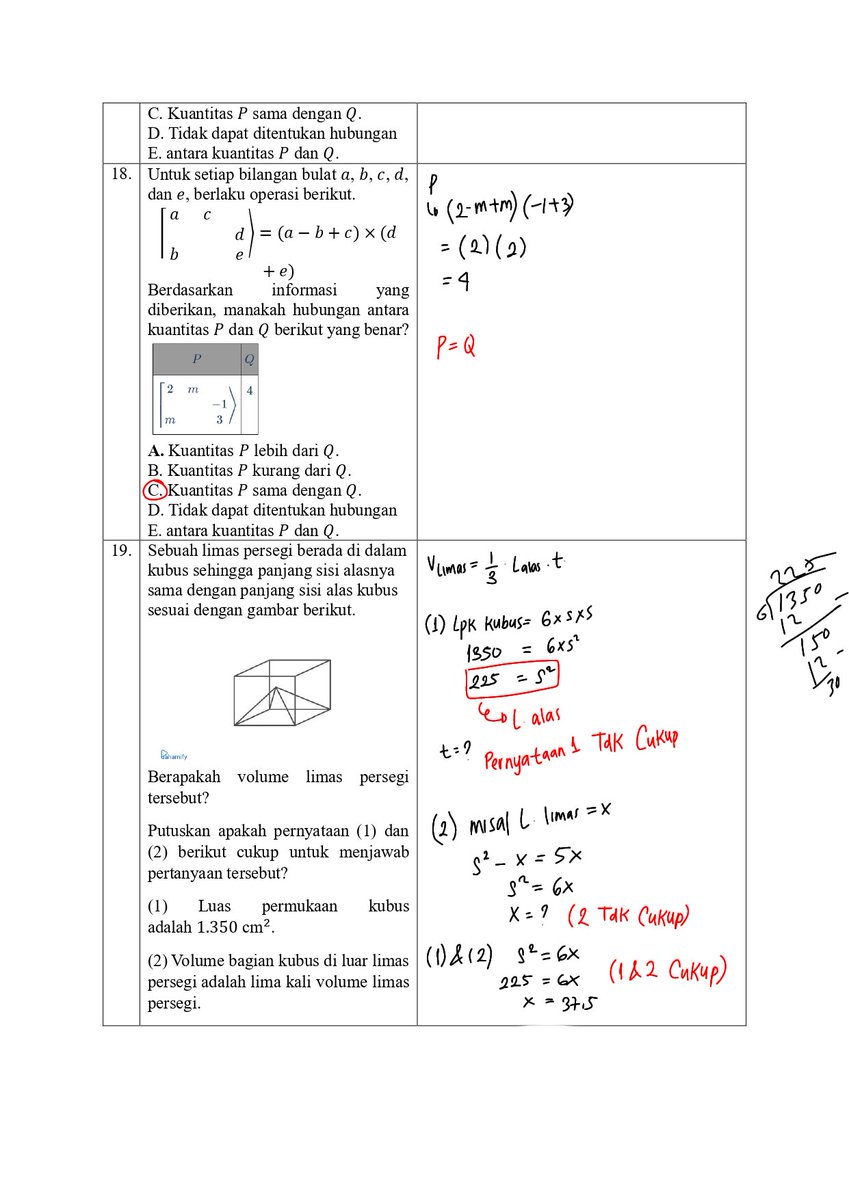 C. Kuantitas P sama dengan Q.
D. Tidak dapat ditentukan hubungan
E. antara kuantitas P dan Q.
18.
Untuk setiap bilangan bulat a, b, c, d,
dan e, berlaku operasi berikut.
a c
d = (a − b + c) × (d
b e
+ e)
Berdasarkan informasi yang
diberikan, manakah hubungan antara
kuantitas P dan Q berikut yang benar?
P Q
2 m 4
−1
m 3
A. Kuantitas P lebih dari Q.
B. Kuantitas P kurang dari Q.
C. Kuantitas P sama dengan Q.
D. Tidak dapat ditentukan hubungan
E. antara kuantitas P dan Q.
P
↳ (2-m+m) (-1+3)
= (2)(2)
= 4
P = Q
19.
Sebuah limas persegi berada di dalam
kubus sehingga panjang sisi alasnya
sama dengan panjang sisi alas kubus
sesuai dengan gambar berikut.
Pahamify
Berapakah volume limas persegi
tersebut?
Putuskan apakah pernyataan (1) dan
(2) berikut cukup untuk menjawab
pertanyaan tersebut?
(1) Luas permukaan kubus
adalah 1.350 cm².
(2) Volume bagian kubus di luar limas
persegi adalah lima kali volume limas
persegi.
V Limas = 1/3 . Lalas . t
(1) Lpk kubus = 6×s×s
1350 = 6×s²
225 = s²
↳ L. alas
t = ?
Pernyataan 1 Tdk Cukup
(2) misal L. limas = x
s² - x = 5x
s² = 6x
x = ? (2 Tdk Cukup)
(1) & (2) s² = 6x
225 = 6x
x = 37,5
(1 & 2 Cukup)
225
6 1350
12
150
12
30